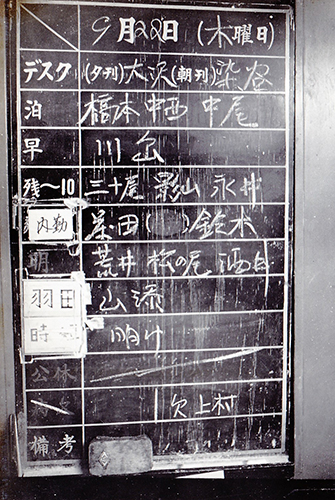 9月28日(木曜日)
デスク (夕刊)大沢(朝刊)染谷
泊 橋本 中西 中尾
早 川島
残〜10 三十尾 影山 永井
内勤 柴田( )鈴木
明 荒井 松の尾
羽田 山添
時 明け
公休
欠 上村
備考